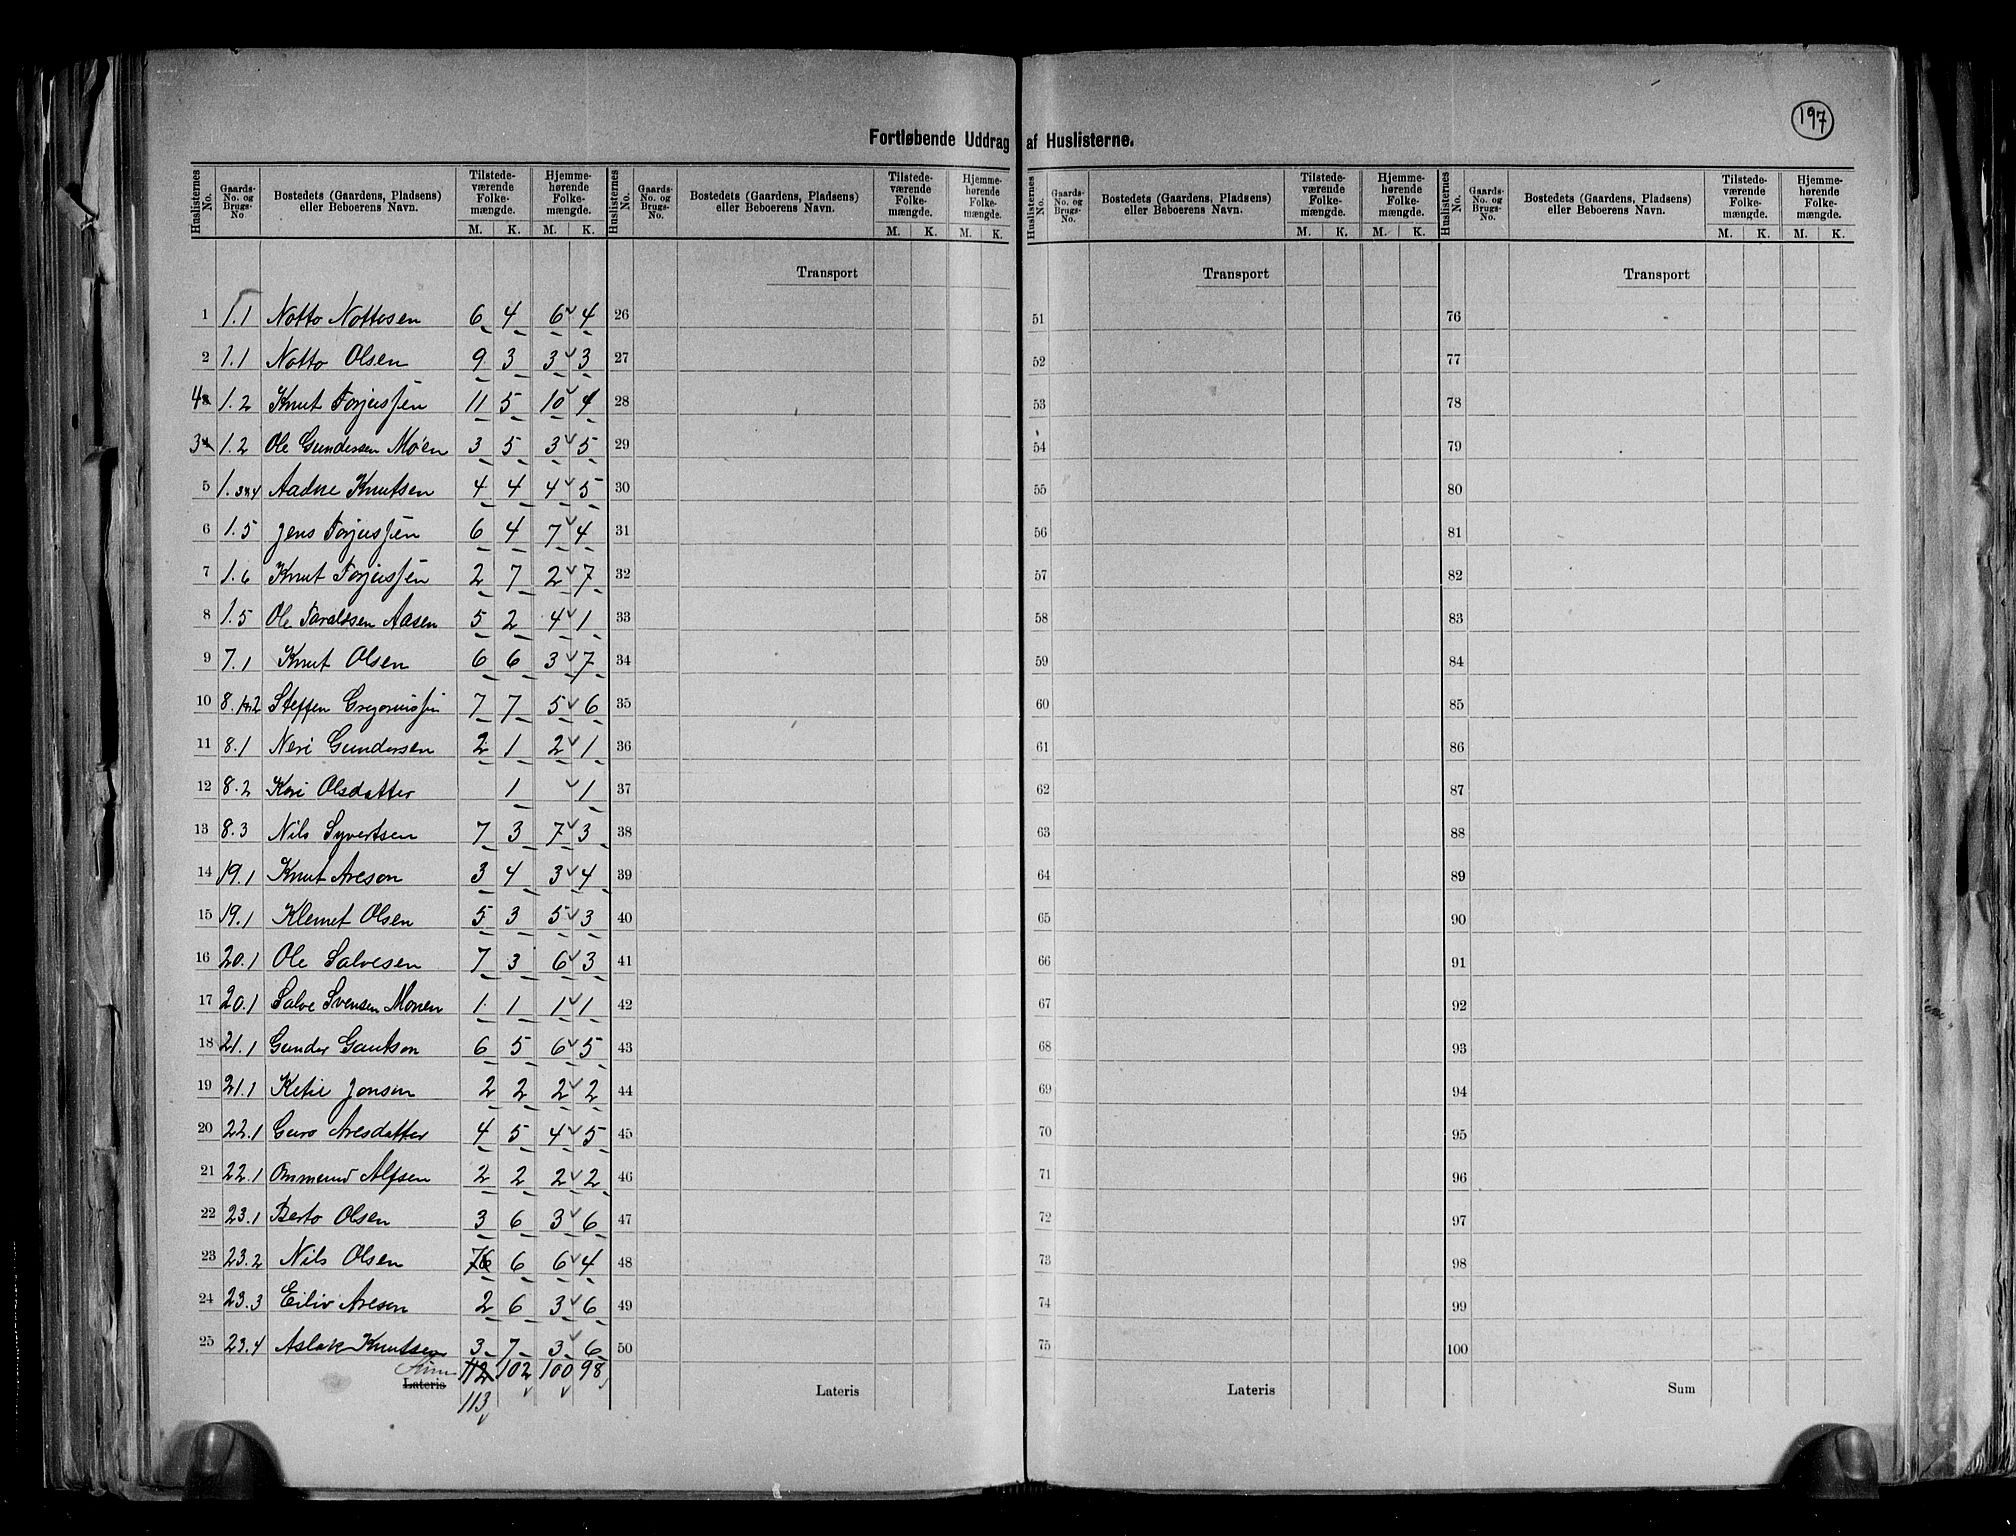 197
Fortløbende Uddrag af Huslisterne.
Huslisternes No. | Gaards-No. og Brugs-No | Bostedets (Gaardens, Pladsens) eller Beboerens Navn. | Tilstedeværende Folkemængde. M. K. | Hjemmehørende Folkemængde. M. K.
Huslisternes No. | Gaards-No. og Brugs-No. | Bostedets (Gaardens, Pladsens) eller Beboerens Navn. | Tilstedeværende Folkemængde. M. K. | Hjemmehørende Folkemængde. M. K.
Huslisternes No. | Gaards-No. og Brugs-No. | Bostedets (Gaardens, Pladsens) eller Beboerens Navn. | Tilstedeværende Folkemængde. M. K. | Hjemmehørende Folkemængde. M. K.
Huslisternes No. | Gaards-No. og Brugs-No. | Bostedets (Gaardens, Pladsens) eller Beboerens Navn. | Tilstedeværende Folkemængde. M. K. | Hjemmehørende Folkemængde. M. K.
Transport Transport Transport
1 1.1 Notto Nottesen 6 4 6 4 26 51 76
2 1.1 Notto Olsen 9 3 3 3 27 52 77
4 1.2 Knut Torjussen 11 5 10 4 28 53 78
3 1.2 Ole Gundersen Moen 3 5 3 5 29 54 79
5 1.3+4 Aadne Knutsen 4 4 4 5 30 55 80
6 1.5 Jens Torjussen 6 4 7 4 31 56 81
7 1.6 Knut Torjussen 2 7 2 7 32 57 82
8 1.5 Ole Taraldsen Aasen 5 2 4 1 33 58 83
9 7.1 Knut Olsen 6 6 3 7 34 59 84
10 8.1+2 Steffen Gregoriussen 7 7 5 6 35 60 85
11 8.1 Neri Gundersen 2 1 2 1 36 61 86
12 8.2 Kari Olsdatter 1 1 37 62 87
13 8.3 Nils Syvertsen 7 3 7 3 38 63 88
14 19.1 Knut Areson 3 4 3 4 39 64 89
15 19.1 Klemet Olsen 5 3 5 3 40 65 90
16 20.1 Ole Salvesen 7 3 6 3 41 66 91
17 20.1 Salve Svensen Monen 1 1 1 1 42 67 92
18 21.1 Gunder Gautson 6 5 6 5 43 68 93
19 21.1 Ketil Jonsen 2 2 2 2 44 69 94
20 22.1 Guro Aresdatter 4 5 4 5 45 70 95
21 22.1 Ommund Alfsen 2 2 2 2 46 71 96
22 23.1 Berto Olsen 3 6 3 6 47 72 97
23 23.2 Nils Olsen 7 6 6 6 4 48 73 98
24 23.3 Eiliv Areson 2 6 3 6 49 74 99
25 23.4 Aslak Knutsen 3 7 3 6 50 75 100
Sum 112 102 100 98
Lateris Lateris Lateris Sum
113